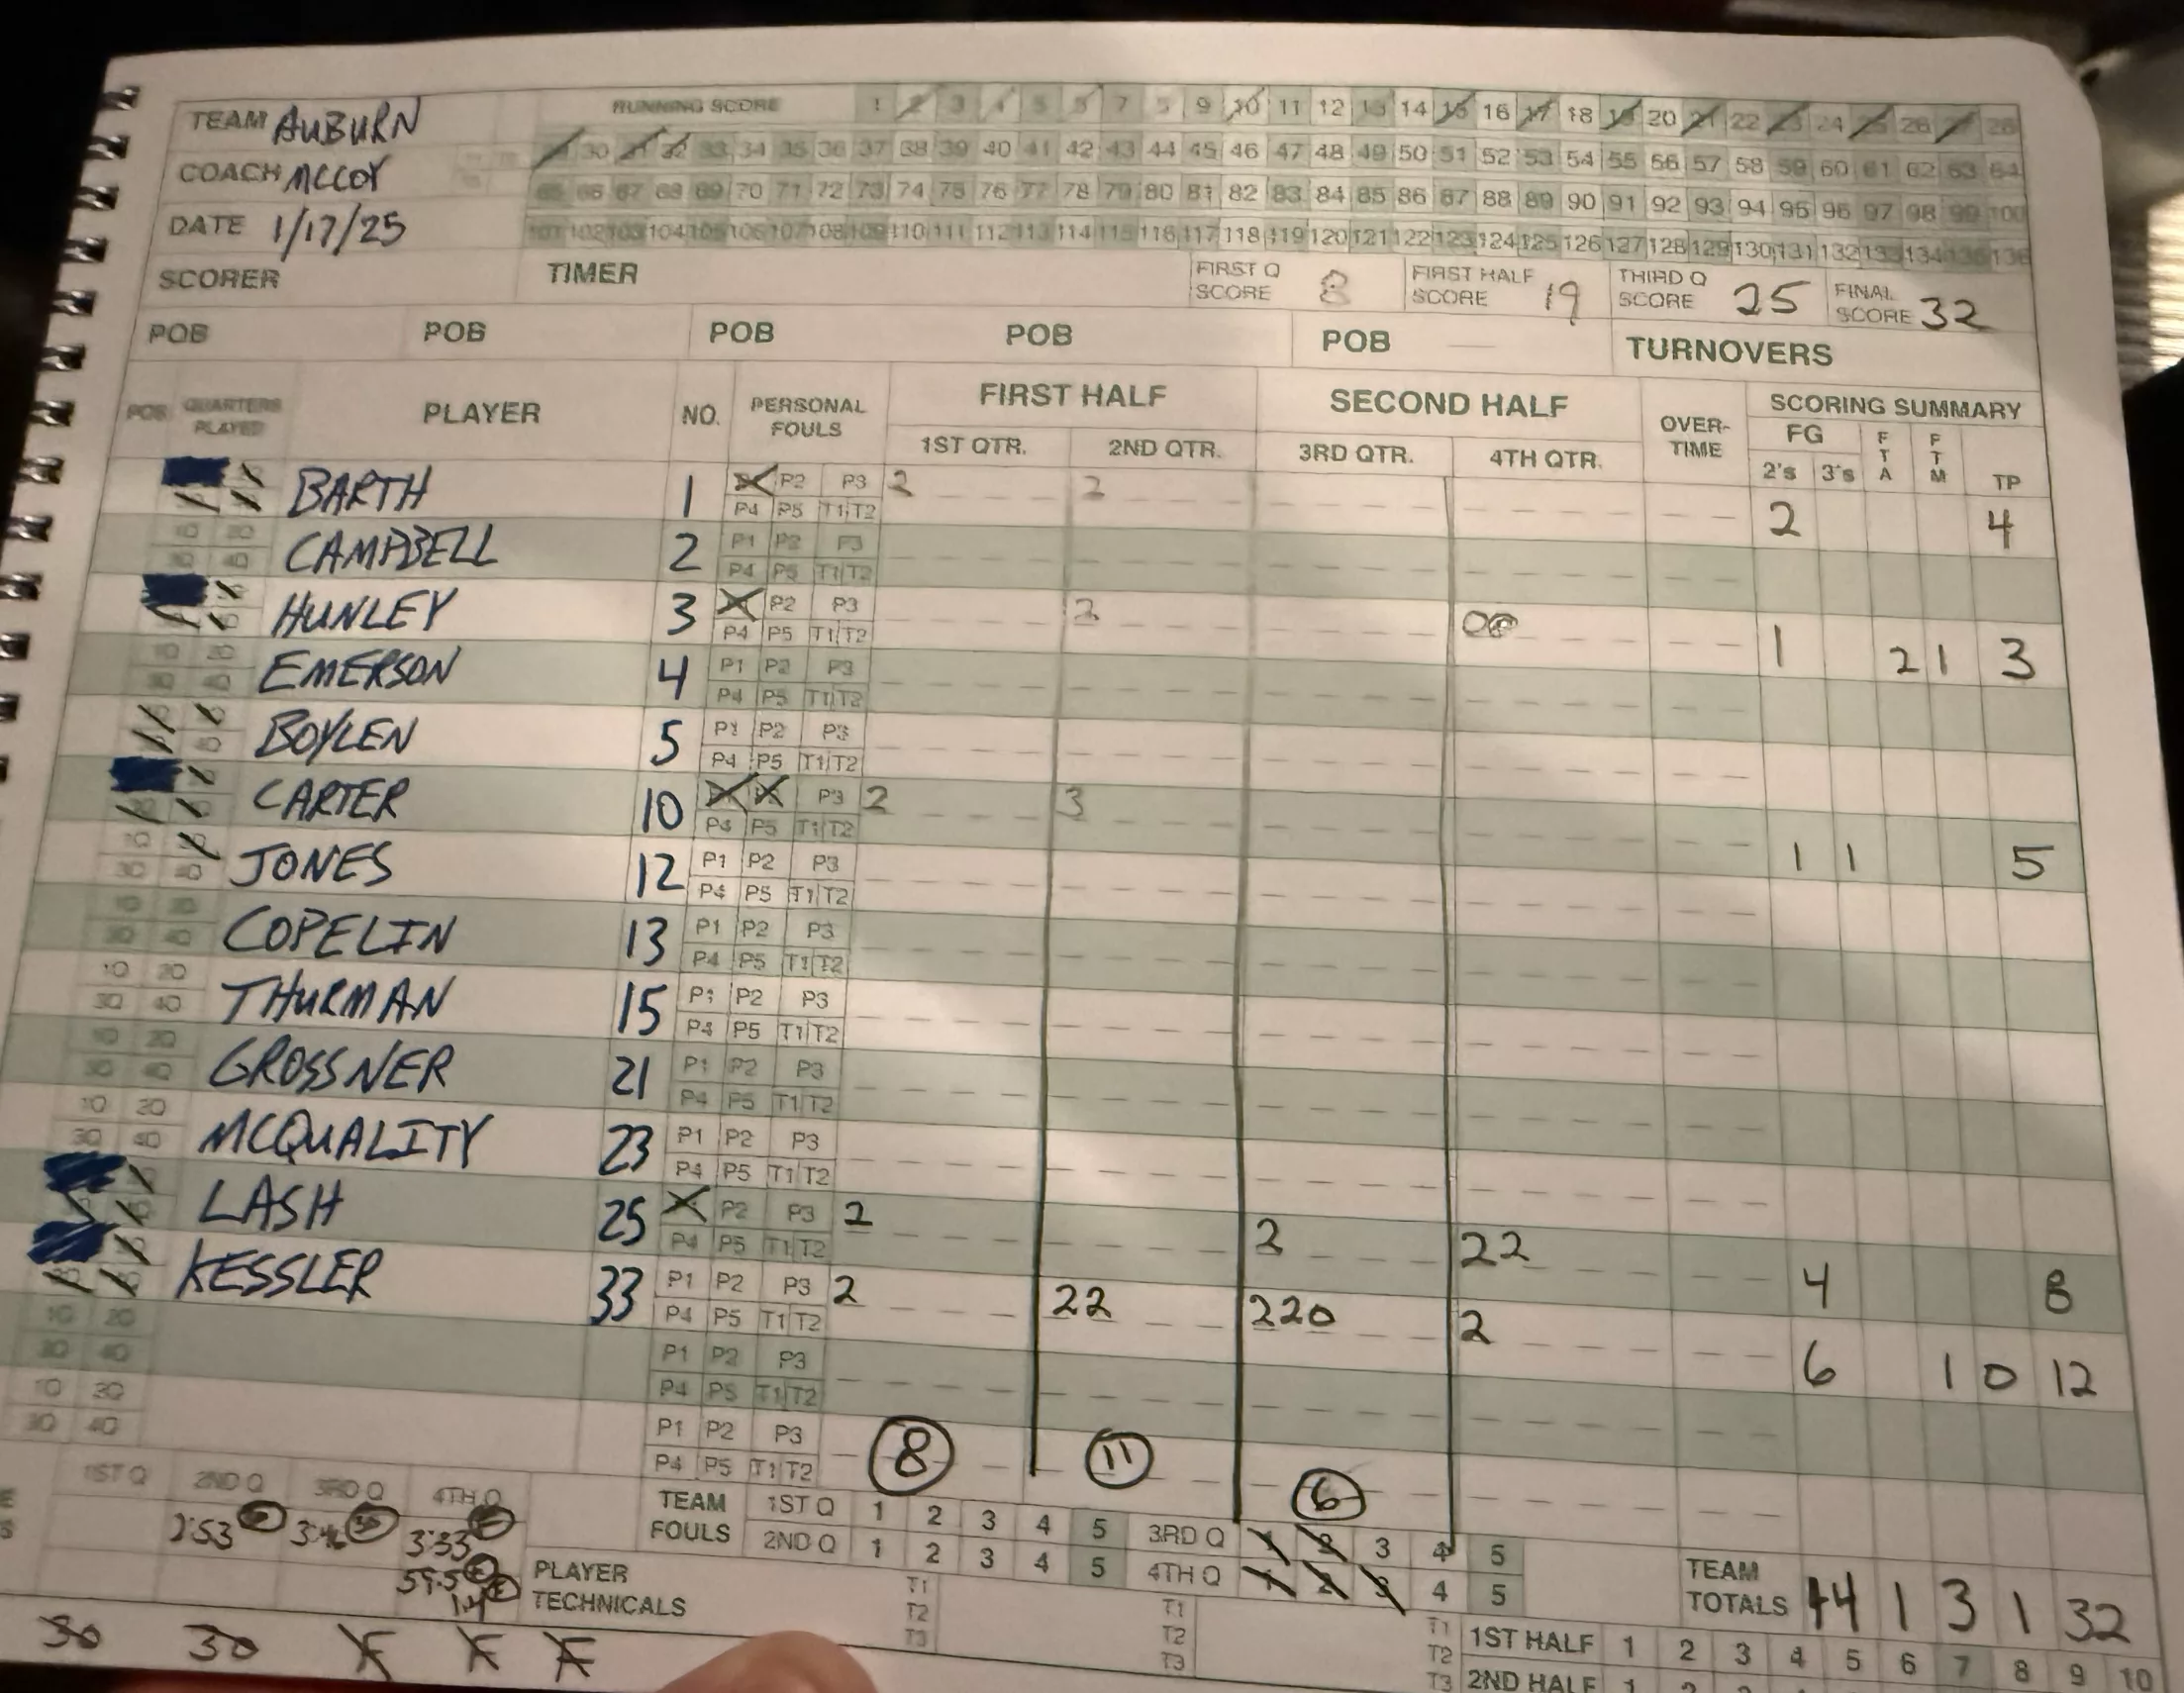 TEAM AUBURN RUNNING SCORE 1 2 3 4 5 6 7 8 9 10 11 12 13 14 15 16 17 18 19 20 21 22 23 24 25 26 27 28
29 30 31 32 33 34 35 36 37 38 39 40 41 42 43 44 45 46 47 48 49 50 51 52 53 54 55 56 57 58 59 60 61 62 63 64
COACH MCCOY
65 66 67 68 69 70 71 72 73 74 75 76 77 78 79 80 81 82 83 84 85 86 87 88 89 90 91 92 93 94 95 96 97 98 99 100
DATE 1/17/25
101 102 103 104 105 106 107 108 109 110 111 112 113 114 115 116 117 118 119 120 121 122 123 124 125 126 127 128 129 130 131 132 133 134 135 136
SCORER TIMER FIRST Q SCORE 8 FIRST HALF SCORE 19 THIRD Q SCORE 25 FINAL SCORE 32
POB POB POB POB POB TURNOVERS
POS QUARTERS PLAYED PLAYER NO. PERSONAL FOULS FIRST HALF SECOND HALF OVER-TIME SCORING SUMMARY
1ST QTR. 2ND QTR. 3RD QTR. 4TH QTR. FG 2's 3's FTA FTM TP
BARTH 1 P2 P3 2 2 2 4
P4 P5 T1 T2
1Q 2Q CAMPBELL 2 P1 P2 P3
3Q 4Q P4 P5 T1 T2
HUNLEY 3 P2 P3 2 1 2 1 3
P4 P5 T1 T2
1Q 2Q EMERSON 4 P1 P2 P3
3Q 4Q P4 P5 T1 T2
BOYLEN 5 P1 P2 P3
4Q P4 P5 T1 T2
CARTER 10 P3 2 3 1 1 5
P4 P5 T1 T2
1Q JONES 12 P1 P2 P3
3Q 4Q P4 P5 T1 T2
1Q 2Q COPELIN 13 P1 P2 P3
3Q 4Q P4 P5 T1 T2
1Q 2Q THURMAN 15 P1 P2 P3
3Q 4Q P4 P5 T1 T2
1Q 2Q GROSSNER 21 P1 P2 P3
3Q 4Q P4 P5 T1 T2
1Q 2Q MCQUALITY 23 P1 P2 P3
3Q 4Q P4 P5 T1 T2
LASH 25 P2 P3 2 2 22 4 8
P4 P5 T1 T2
KESSLER 33 P1 P2 P3 2 22 220 2 6 1 0 12
P4 P5 T1 T2
1Q 2Q P1 P2 P3
3Q 4Q P4 P5 T1 T2
1Q 2Q P1 P2 P3 8 11 6
3Q 4Q P4 P5 T1 T2
1ST Q 2ND Q 3RD Q 4TH Q
TEAM FOULS 1ST Q 1 2 3 4 5 3RD Q 1 2 3 4 5
2ND Q 1 2 3 4 5 4TH Q 1 2 3 4 5
2:53 3:33
59.5
1.4
TEAM TOTALS 14 1 3 1 32
PLAYER TECHNICALS T1 T1 T1
T2 T2 T2
T3 T3 T3
30 30 F F F
1ST HALF 1 2 3 4 5 6 7 8 9 10
2ND HALF 1 2